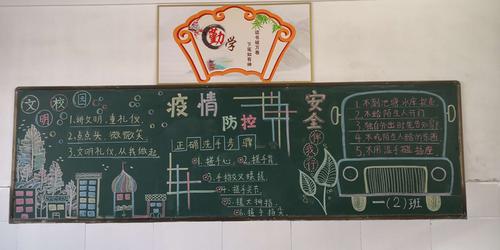 勤学
读书破万卷
下笔如有神
文明校园
1、讲文明,重礼仪
2、点点头,微微笑
3、文明礼仪,从我做起
疫情
防控
正确洗手步骤
1、搓手心
2、搓手背
3、手指交叉搓
4、搓手关节
5、搓大拇指
6、搓手指尖
安全伴我行
1、不到池塘水库玩耍
2、不给陌生人开门
3、独自外出时
4、不吃陌生人给的东西
5、不用湿手碰插座
一(2)班